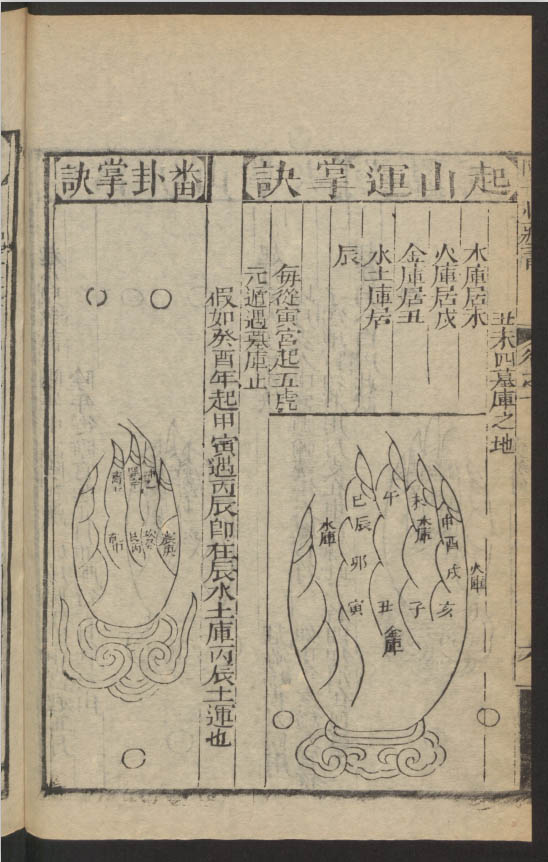 丑未四墓庫之地
起山運掌訣
木庫居未
火庫居戌
金庫居丑
水土庫居
辰
每從寅宮起五虎
元遁遇墓庫止
假如癸酉年起甲寅遇丙辰即在辰水土庫丙辰土運也
申
酉
戌
亥
火庫
未
木庫
子
午
丑
金庫
巳
辰
卯
寅
水庫
番卦掌訣